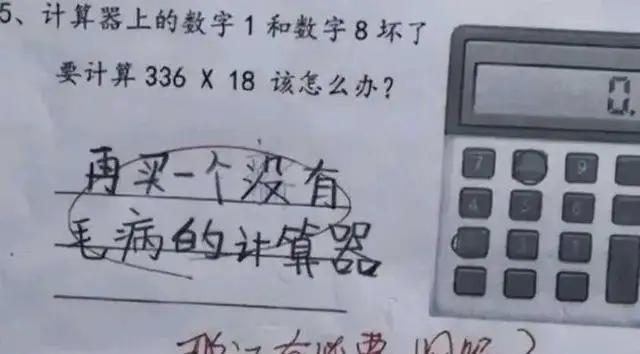 5、计算器上的数字1和数字8坏了
要计算336 X 18 该怎么办?
再买一个没有
毛病的计算器
0.
7 9
4 5 6